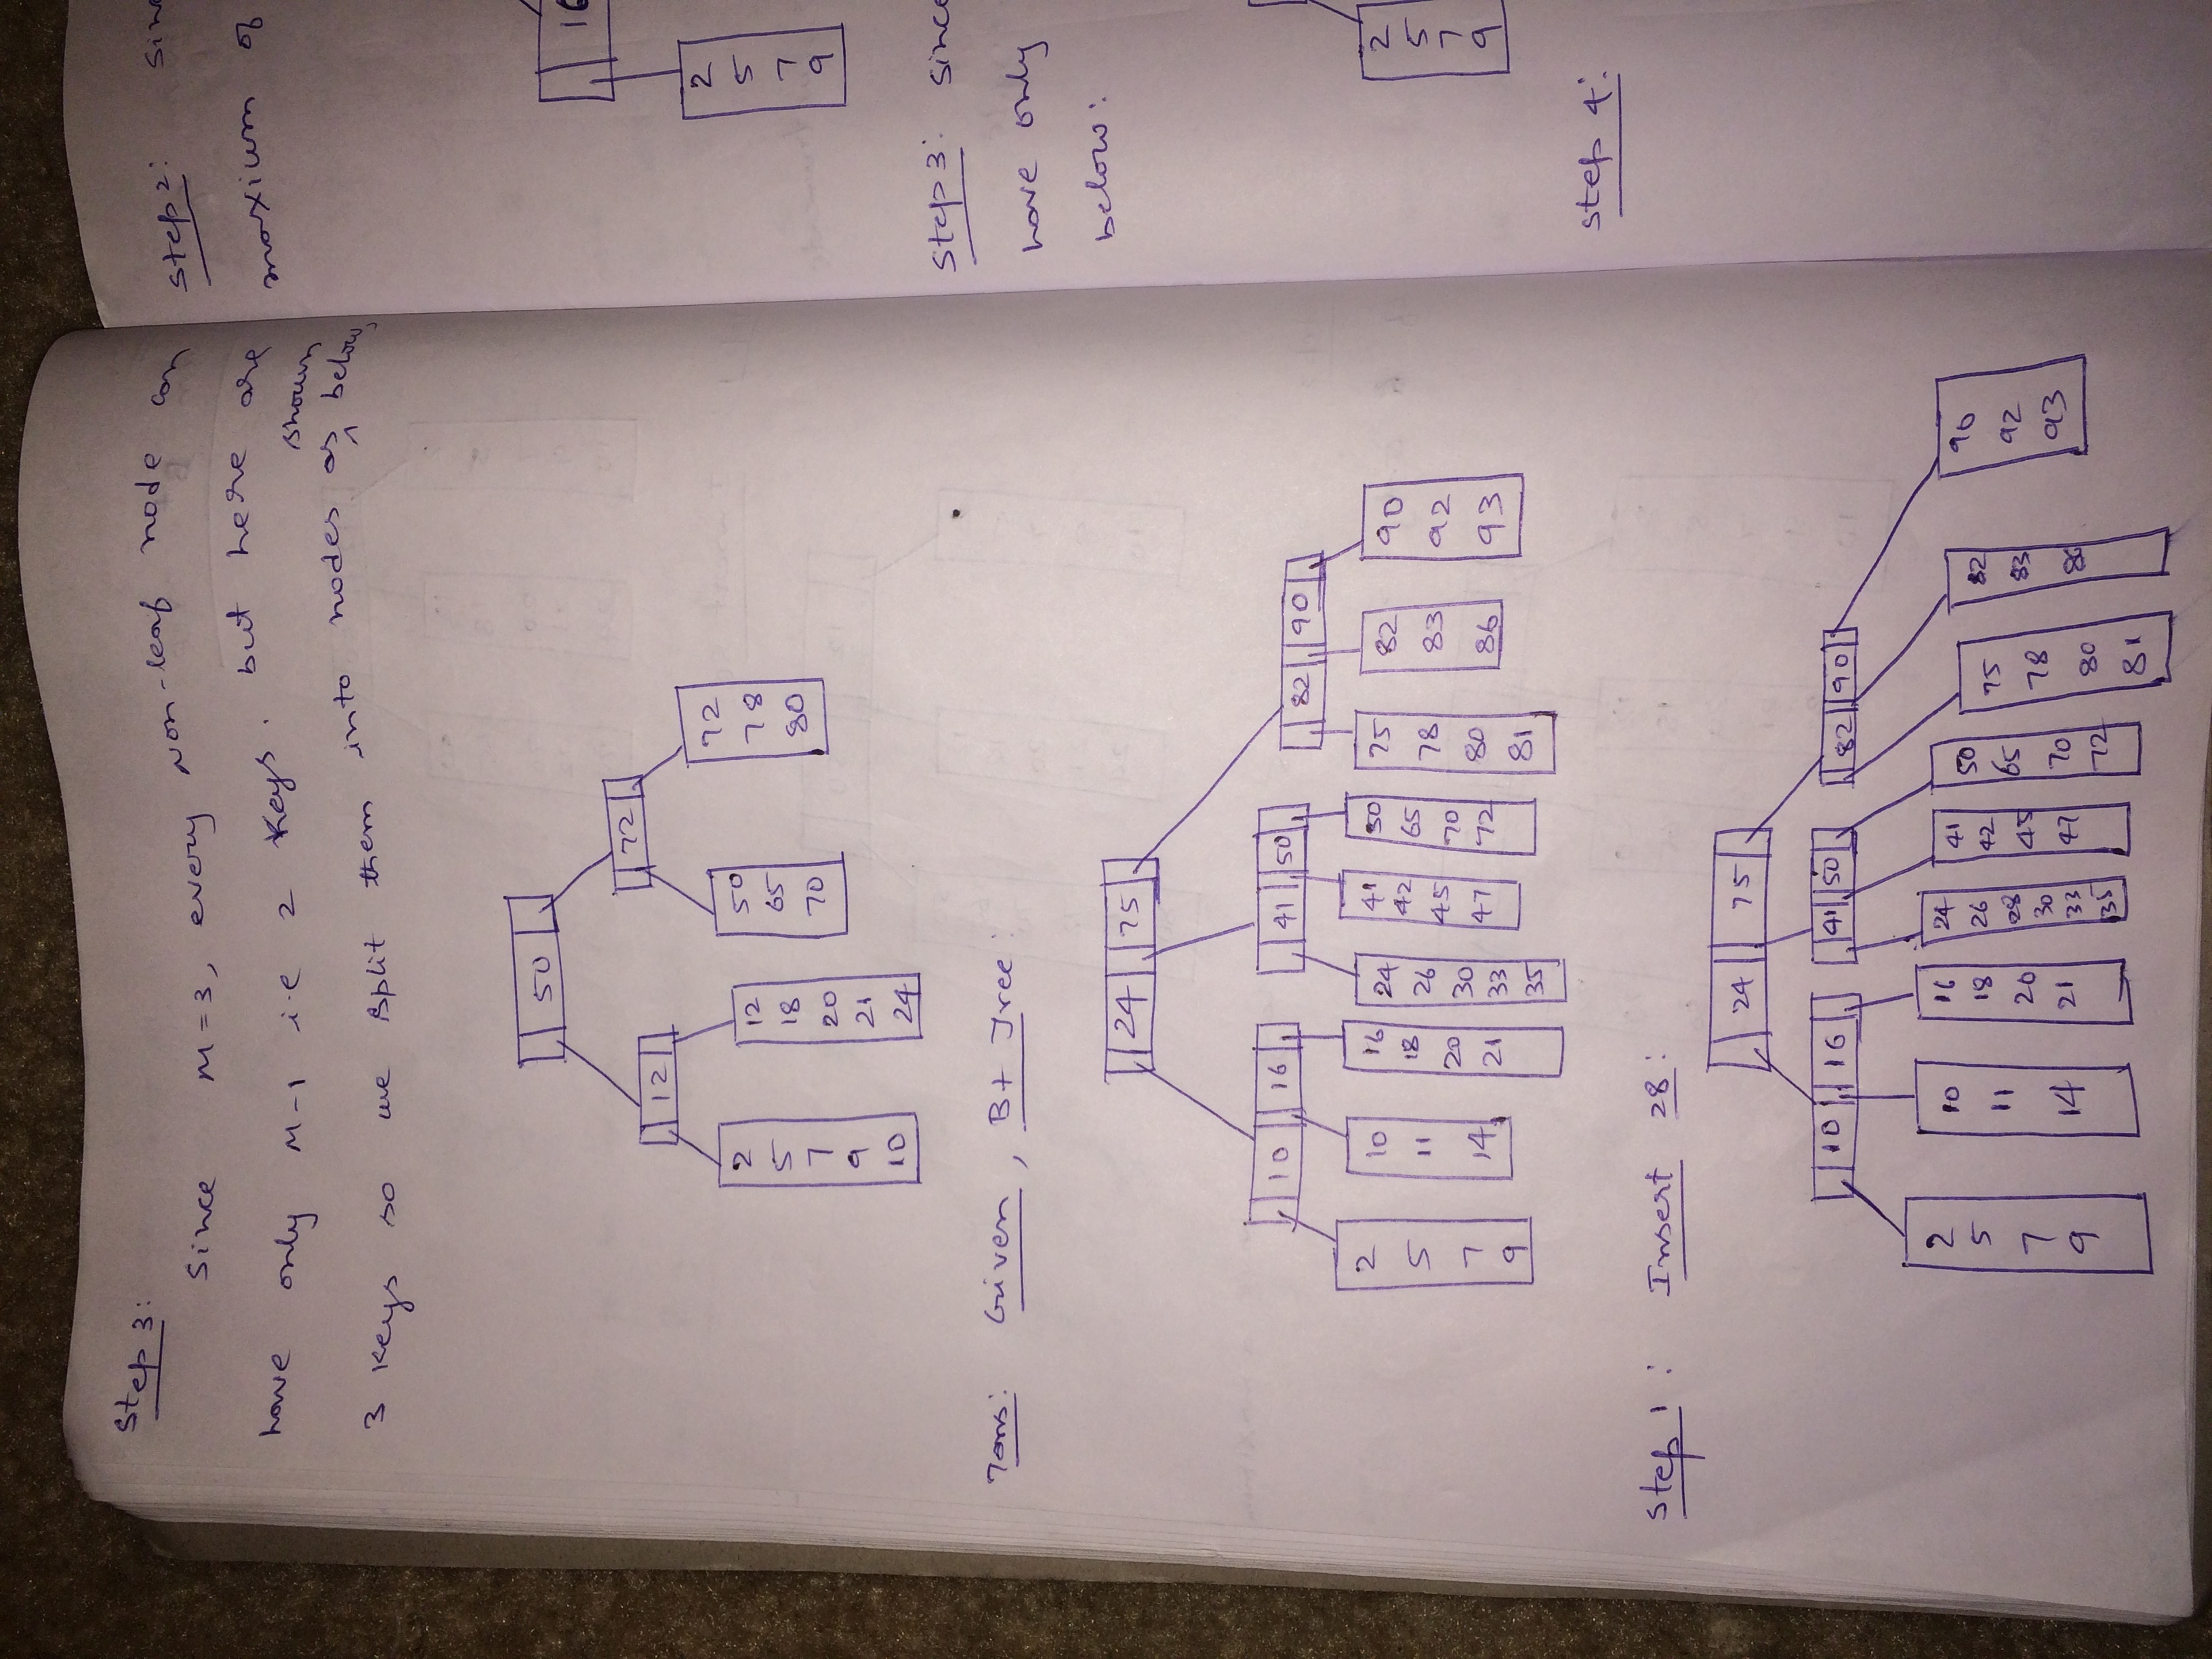 Step 3:
Since M=3, every Non-leaf node can
have only M-1 i.e 2 keys. but here are
shown
3 keys so we split them into nodes as ^ below,
50
12 72
2 5 7 9 10
12 18 20 21 24
50 65 70
72 78 80
7ans: Given, B+ Tree:
24 75
10 16 41 50 82 90
2 5 7 9
10 11 14
16 18 20 21
24 26 30 33 35
41 42 45 47
50 65 70 72
75 78 80 81
82 83 86
90 92 93
Step 1: Insert 28:
24 75
10 16 41 50 82 90
2 5 7 9
10 11 14
16 18 20 21
24 26 28 30 33 35
41 42 45 47
50 65 70 72
75 78 80 81
82 83 86
90 92 93
Step 2:
moxium of
2 5 7 9
Step 3: Since
have only
below:
2 5 7 9
Step 4: